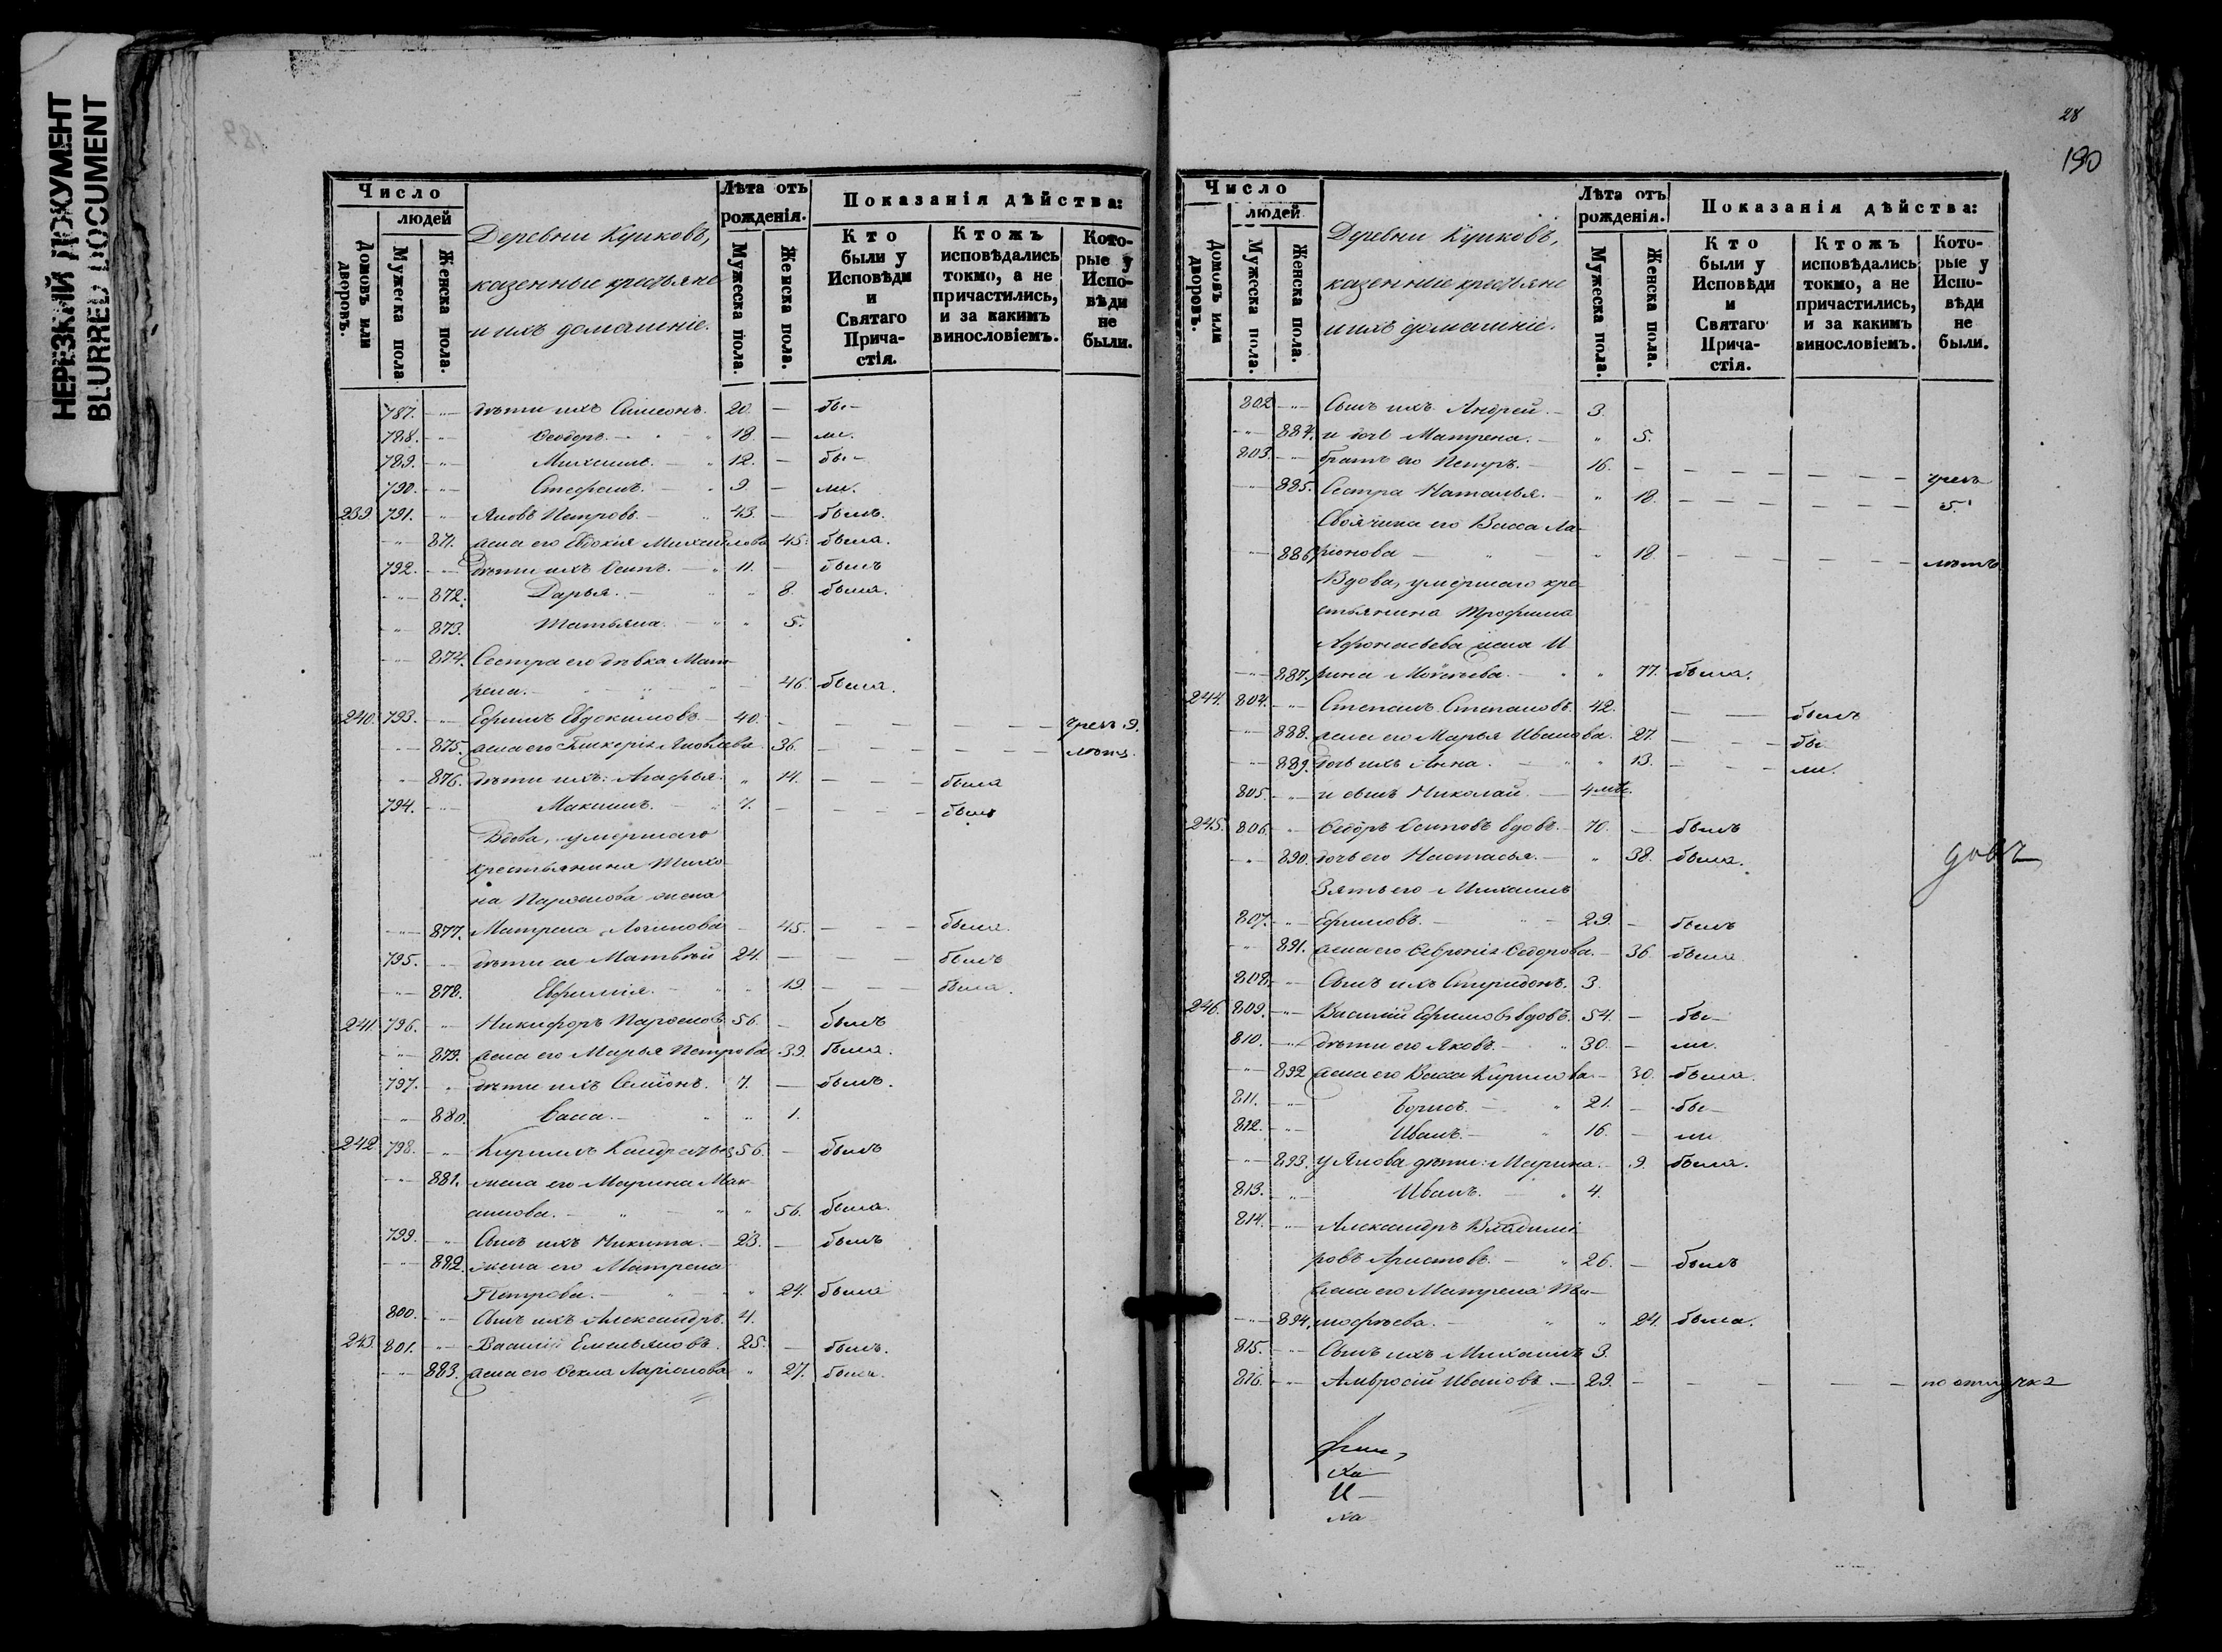 НЕРЕЗКИЙ ДОКУМЕНТ
BLURRED DOCUMENT
Число
людей
Домовъ или дворовъ.
Мужеска пола
Женска пола.
Деревни Куликовъ,
казенные крестьяне
и ихъ домашніе.
Лѣта отъ рожденія.
Мужеска пола.
Женска пола.
Показанія дѣйства:
Кто были у Исповѣди и Святаго Прича- стія.
Ктожъ исповѣдались токмо, а не причастились, и за какимъ винословіемъ.
Кото- рые у Испо- вѣди не были.
787. дѣти ихъ Симеонъ. 20. — бы —
788. Ѳеодоръ. 18. — ли.
789. Михаилъ. 12. — бы —
790. Стефанъ. 9 — ли.
239 791. Яковъ Петровъ. 43. — былъ.
871. жена его Евдокія Михайлова 45. была.
792. дѣти ихъ Осипъ. 11. — былъ
872. Дарья. 8. была.
873. Татьяна. 5.
874. Сестра его дѣвка Мат-
рена. 46. была.
240. 793. Ефимъ Евдокимовъ. 40. чрезъ 9.
875. жена его Гликерія Яковлева. 36. лѣтъ.
876. дѣти ихъ: Агафья. 14. была
794. Максимъ. 7. былъ
Вдова, умершаго
крестьянина Тихо-
на Парѳенова жена
877. Матрена Логинова 45. была.
795. дѣти ея Матвѣй 24. былъ
878. Евфимія. 19. была.
241. 796. Никифоръ Парѳеновъ 56. — былъ
879. жена его Марья Петрова 39. была.
797. дѣти ихъ Семіонъ. 7. — былъ.
880. 1.
242 798. Кирилъ Кандратьев 56. — былъ
881. жена его Марина Мак-
симова. 56. была.
799. Сынъ ихъ Никита. 23. — былъ
882. жена его Матрена
Петрова. 24. была
800. Сынъ ихъ Александръ. 4.
243. 801. Василій Емельяновъ. 25. — былъ.
883. жена его Ѳекла Ларіонова 27. была.
28
190
Число
людей
Домовъ или дворовъ.
Мужеска пола.
Женска пола.
Деревни Куликовъ,
казенные крестьяне
и ихъ домашніе.
Лѣта отъ рожденія.
Мужеска пола.
Женска пола.
Показанія дѣйства:
Кто были у Исповѣди и Святаго Прича- стія.
Ктожъ исповѣдались токмо, а не причастились, и за какимъ винословіемъ.
Кото- рые у Испо- вѣди не были.
802 Сынъ ихъ Андрей. 3.
884. и дочь Матрена. 5.
803. братъ его Петръ. 16. чрезъ
885. Сестра Наталья. 18. 5.
Своячина его Васса Ла-
886. ріонова 18. лѣтъ
Вдова, умершаго кре-
стьянина Трофима
Афонасьева жена И
887. рина Моѵсеева. 77. была.
244. 804. Степанъ Степановъ 42. былъ
888. жена его Марья Иванова. 27. бы
889. дочь ихъ Анна. 13. ли.
805. и сынъ Николай. 4 мѣс.
245. 806. Ѳедоръ Осиповъ вдовъ. 70. — былъ
890. дочь его Настасья. 38. была.
Зять его Михаилъ
807. Ефимовъ. 29. — былъ
891. жена его Ѳевронія Ѳедорова. 36. была
808. Сынъ ихъ Спиридонъ. 3.
246. 809. Василій Ефимовъ вдовъ. 54. — бы —
810. дѣти его Яковъ. 30. — ли.
892 жена его Васса Кирилова 30. была.
811. Борисъ. 21. — бы —
812. Иванъ. 16. — ли
893. у Якова дѣти: Марина. 9. была.
813. Иванъ. 4.
814. Александръ Владимі-
ровъ Аристовъ. 26. — былъ
жена его Матрена Ти-
894. мофѣева. 24. была.
815. Сынъ ихъ Михаилъ 3.
816. Амвросій Ивановъ. 29. по отлучкѣ